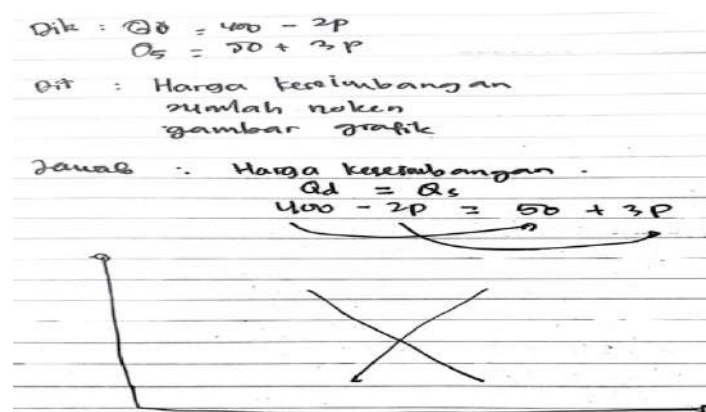 Dik : Qd = 400 - 2p
Qs = 50 + 3p
Dit : Harga keseimbangan
jumlah noken
gambar grafik
Jawab : Harga keseimbangan.
Qd = Qs
400 - 2p = 50 + 3p